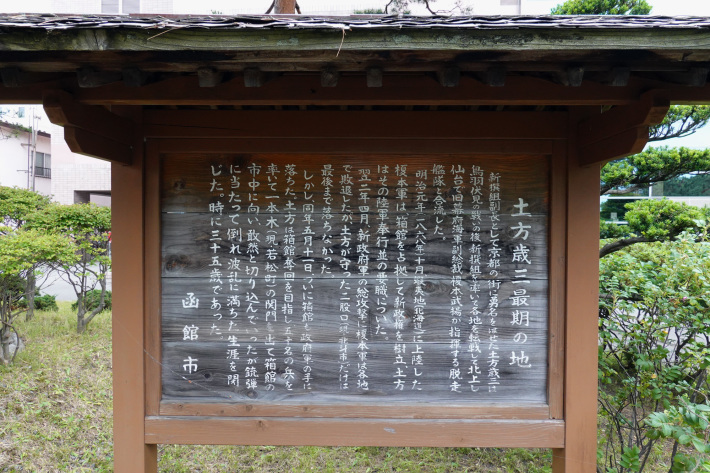 土方歳三最期の地
新撰組副長として京都の街に勇名をはせた土方歳三は
鳥羽伏見の戦の後新撰組を率いて各地を転戦して北上し
仙台で旧幕府海軍副総裁榎本武揚が指揮する脱走
艦隊と合流した。
明治元年(一八六八年)十月蝦夷地(北海道)に上陸した
榎本軍は、箱館を占拠して新政権を樹立土方
はその陸軍奉行並の要職についた。
翌二年四月、新政府軍の総攻撃に榎本軍は各地
で敗退したが土方が守った二股口(現・北斗市)だけは
最後まで落ちなかった。
しかし同年五月十一日ついに箱館も政府軍の手に
落ちた。土方は箱館奪回を目指し、手ぜの兵を
率いて一本木(現若松町)の関門を出て箱館の
市中に向い、敢然と切り込んでいったが銃弾
に当たって倒れ波乱に満ちた生涯を閉
じた。時に三十五歳であった。
函館市